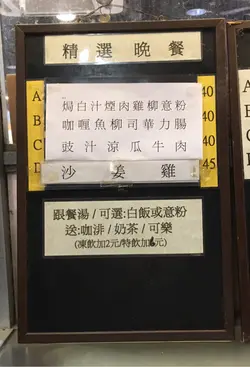 精選晚餐
A 焗白汁煙肉雞柳意粉 40
B 咖喱魚柳司華力腸 40
C 豉汁涼瓜牛肉
D 沙姜雞 45
跟餐湯/可選:白飯或意粉
送:咖啡/奶茶/可樂
(凍飲加2元/特飲加6元)